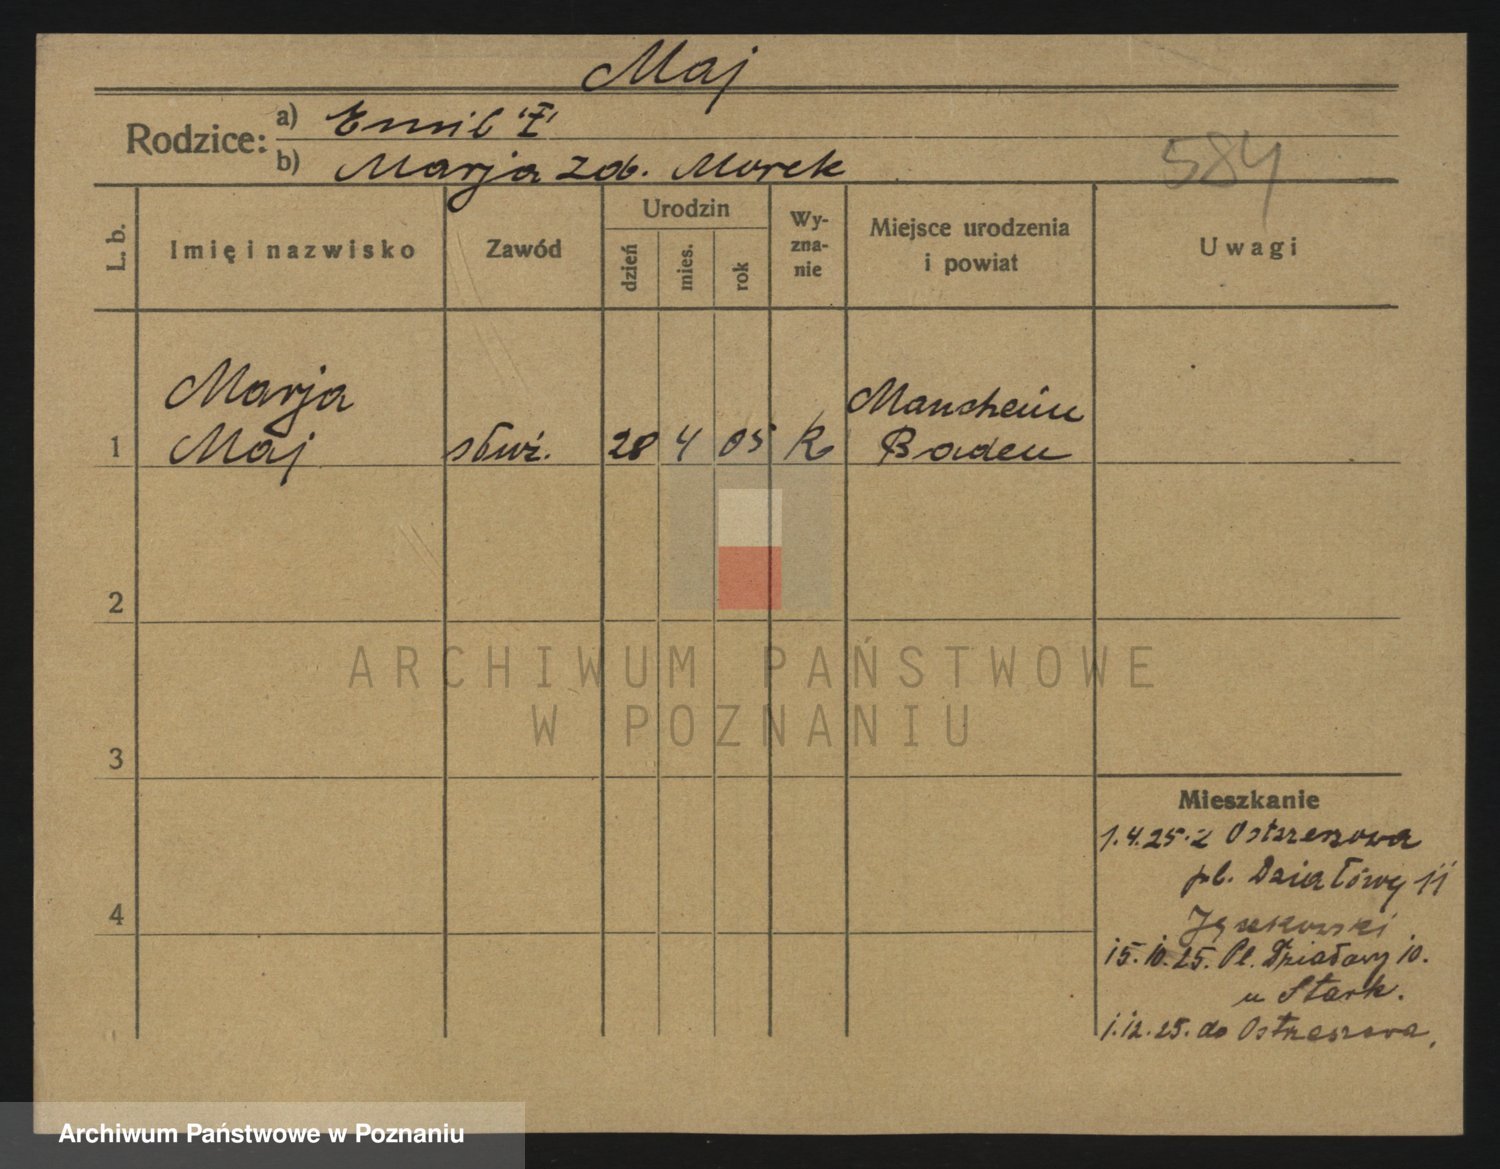 Maj
Rodzice:
a) Emil
b) Marja zdb. Morek
584
L. b.
Imię i nazwisko
Zawód
Urodzin
dzień
mies.
rok
Wy-
zna-
nie
Miejsce urodzenia
i powiat
Uwagi
Marja
1 Maj służ. 28 4 05 K Mancheim
Baden
2
ARCHIWUM PAŃSTWOWE
W POZNANIU
3
Mieszkanie
1.4.25. z Ostrzeszowa
pl. Działowy 11
15.10.25. Pl. Działowy 10.
u Stark.
4
1.12.25. do Ostrzeszowa.
Archiwum Państwowe w Poznaniu